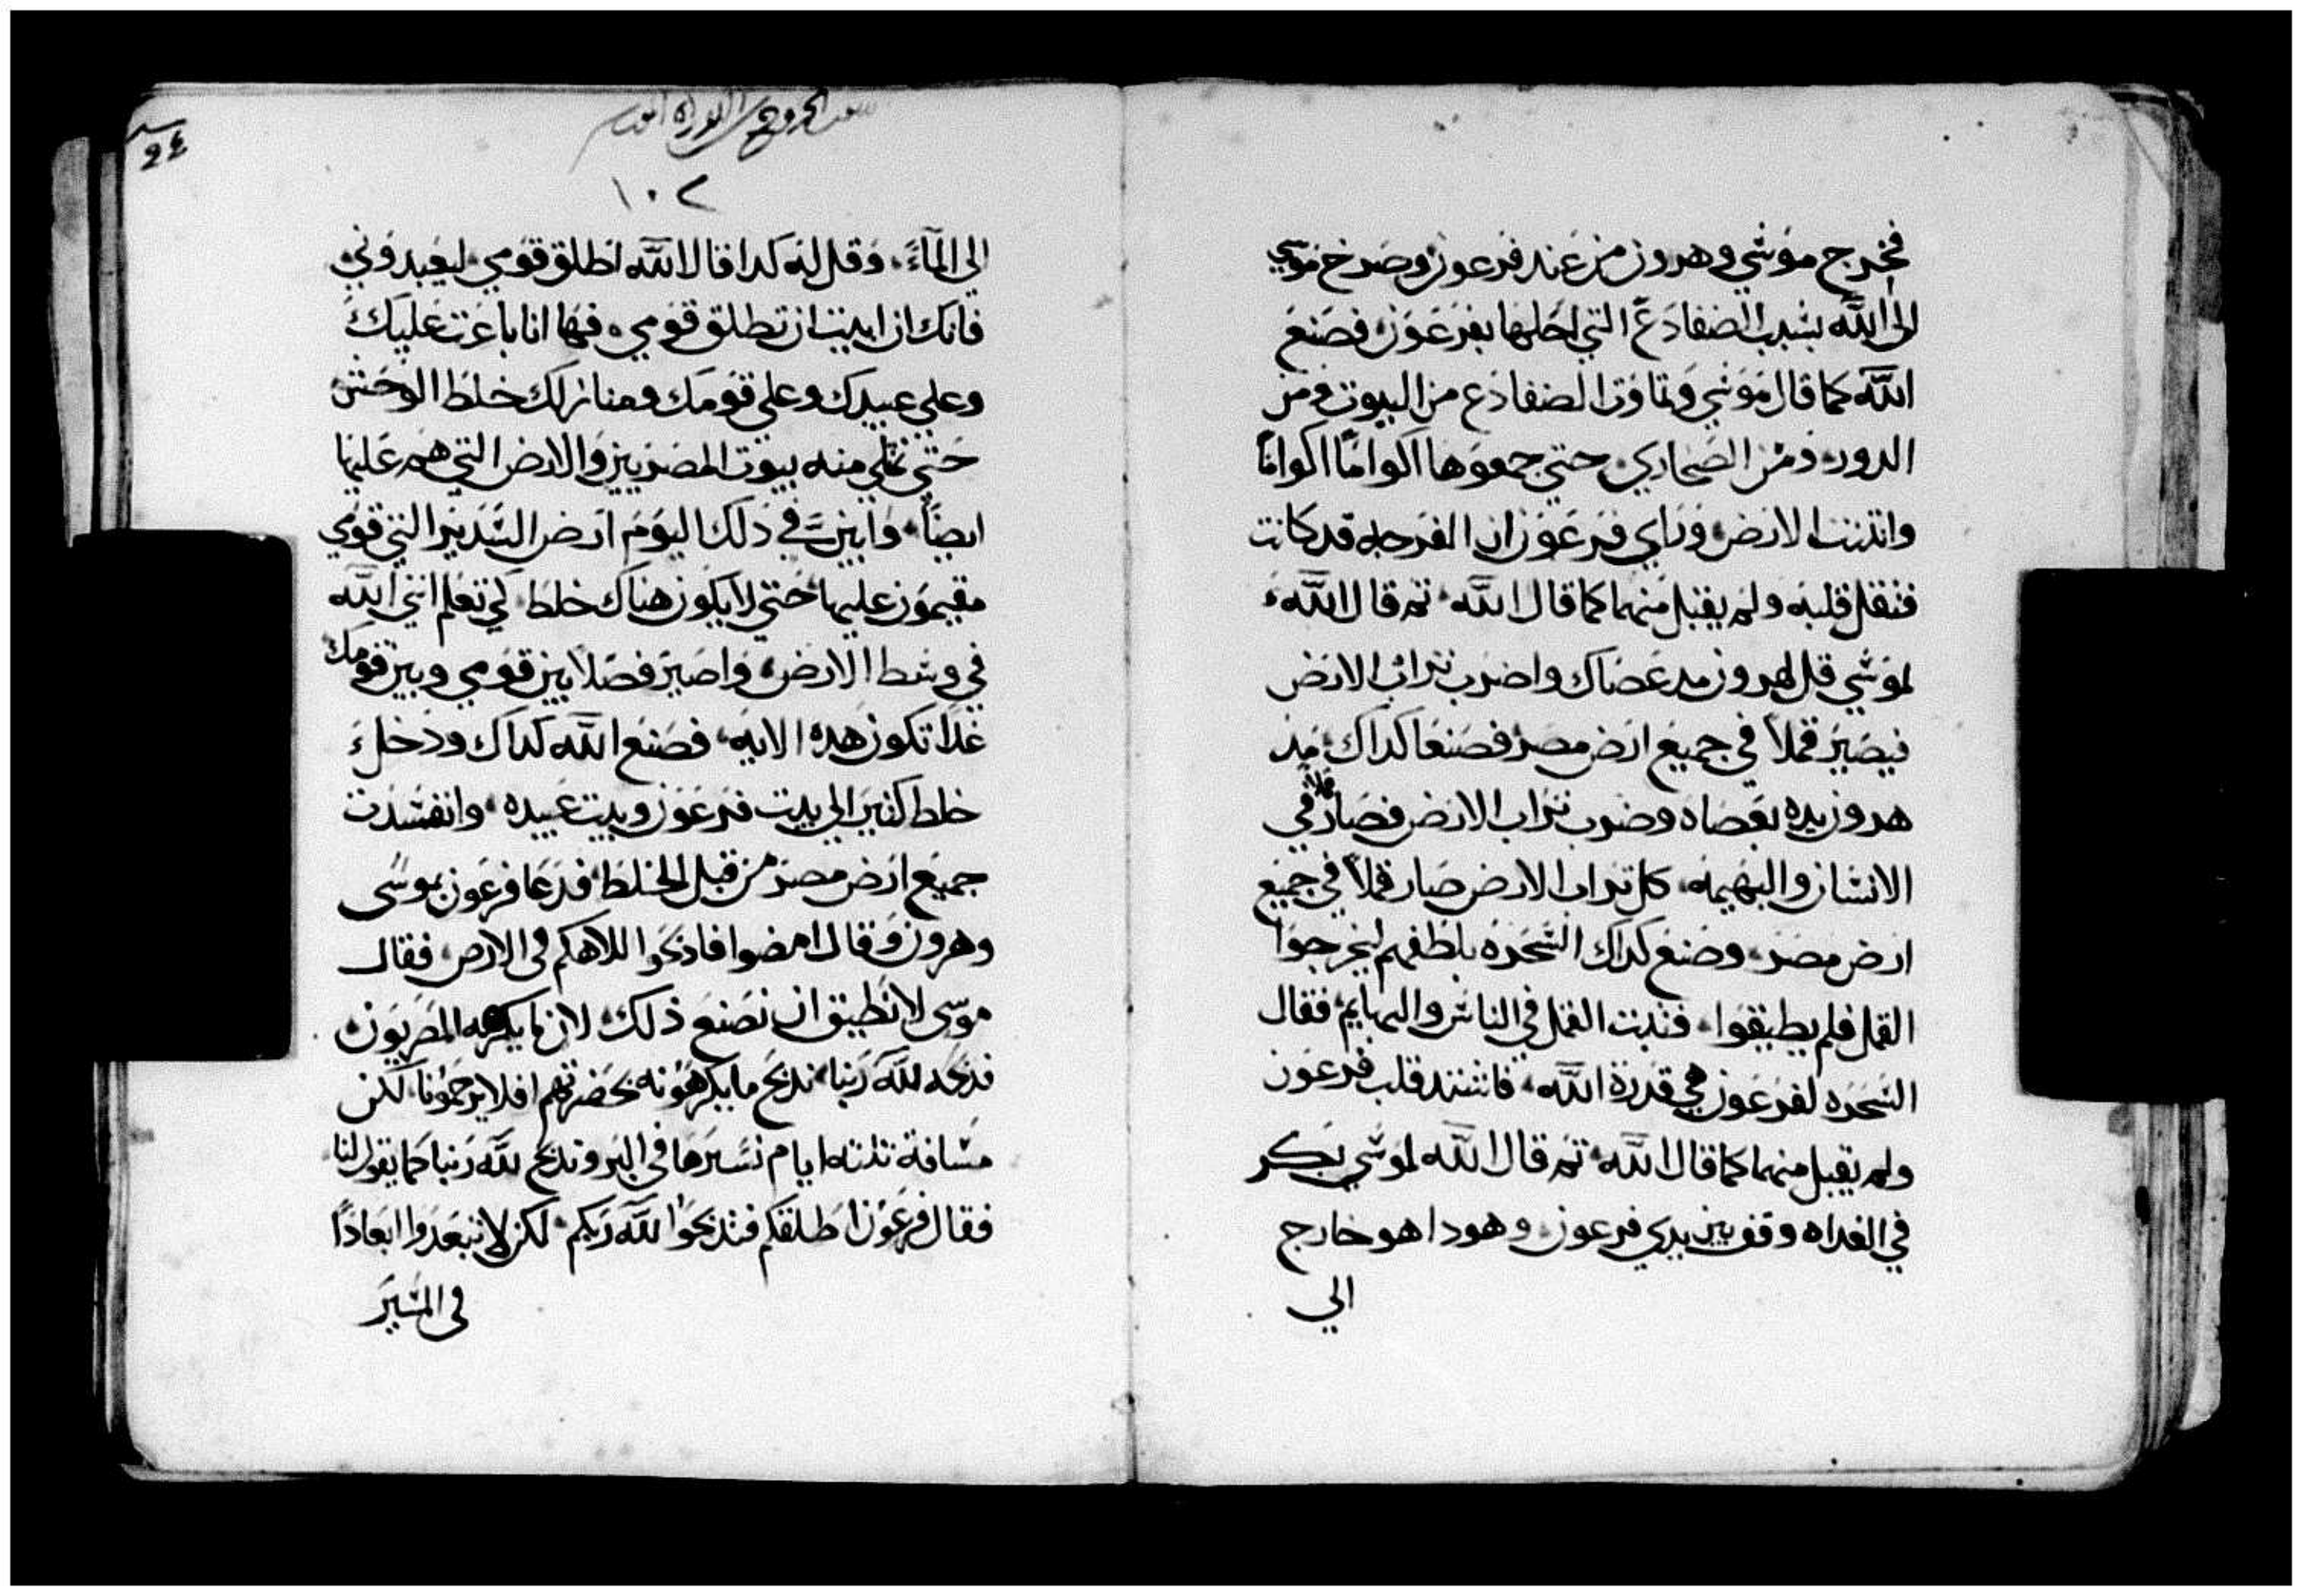 فخرج موسي وهرون من عند فرعون وصرخ موسي
الى الله بسبب الضفادع التي احلها بفرعون فصنع
الله كما قال موسي وتماوت الضفادع من البيوت ومن
الدور ومن الصحاري حتي جمعوها اكواماً اكواماً
وانتنت الارض وراي فرعون ان الفرجه قد كانت
فثقل قلبه ولم يقبل منهما كما قال الله ثم قال الله
لموسي قل لهرون مد عصاك واضرب تراب الارض
فيصير قملاً في جميع ارض مصر فصنعا كداك مد
هرون يده بعصاه وضرب تراب الارض فصار قملاً في
الانسان والبهيمه كل تراب الارض صار قملاً في جميع
ارض مصر وصنع كداك السحره بلطفهم ليخرجوا
القمل فلم يطيقوا فثبت القمل في الناس والبهايم فقال
السحره لفرعون هي قدرة الله فاشتد قلب فرعون
ولم يقبل منهما كما قال الله ثم قال الله لموسي بكر
في الغداه وقف بين يدي فرعون وهودا هو خارج
الي
سفر الخروج من التوراه
١٠٢
الي المآء وقل له كدا قال الله اطلق قومي ليعبدوني
فانك ان ابيت ان تطلق قومي فها انا باعت عليك
وعلي عبيدك وعلي قومك ومنازلك خلط الوحش
حتي تملي منه بيوت المصريين والارض التي هم عليها
ايضاً وابين في ذلك اليوم ارض السدير التي قومي
مقيمون عليها حتي لا يكون هناك خلط لكي تعلم انني الله
في وسط الارض واصير فصلاً بين قومي وبين قومك
غداً تكون هده الايه فصنع الله كداك ودخل
خلط كثير الي بيت فرعون وبيت عبيده وانفسدت
جميع ارض مصر من قبل الخلط فدعا فرعون بموسى
وهرون وقال امضوا فادبحوا لالاهكم فى الارض فقال
موسى لا نطيق ان نصنع ذلك لان ما يكرهه المصريون
ندبحه لله ربنا ندبح ما يكرهونه بحضرتهم افلا يرجمونا لكن
مسافة ثلثه ايام نسيرها في البر وندبح لله ربنا كما يقول لنا
فقال فرعون اطلقكم فتدبحوا لله ربكم لكن لا تبعدوا ابعاداً
فى المسير